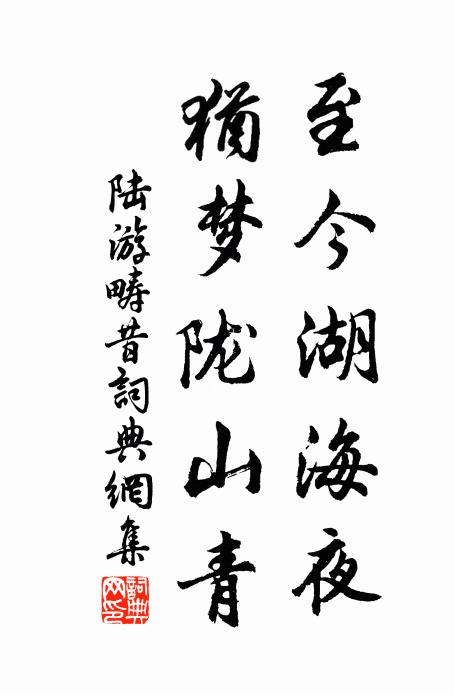 至今湖海夜
猶梦陇山青
陆游畴昔詞典網集
詞典
网印